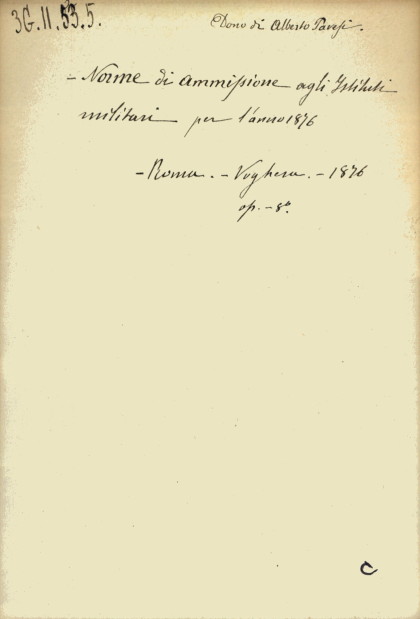 3G.II.53.5.
Dono di Alberto Pavesi.
- Norme di ammissione agli Istituti
militari per l'anno 1876
- Roma. - Voghera. - 1876
op. - 8°.
C